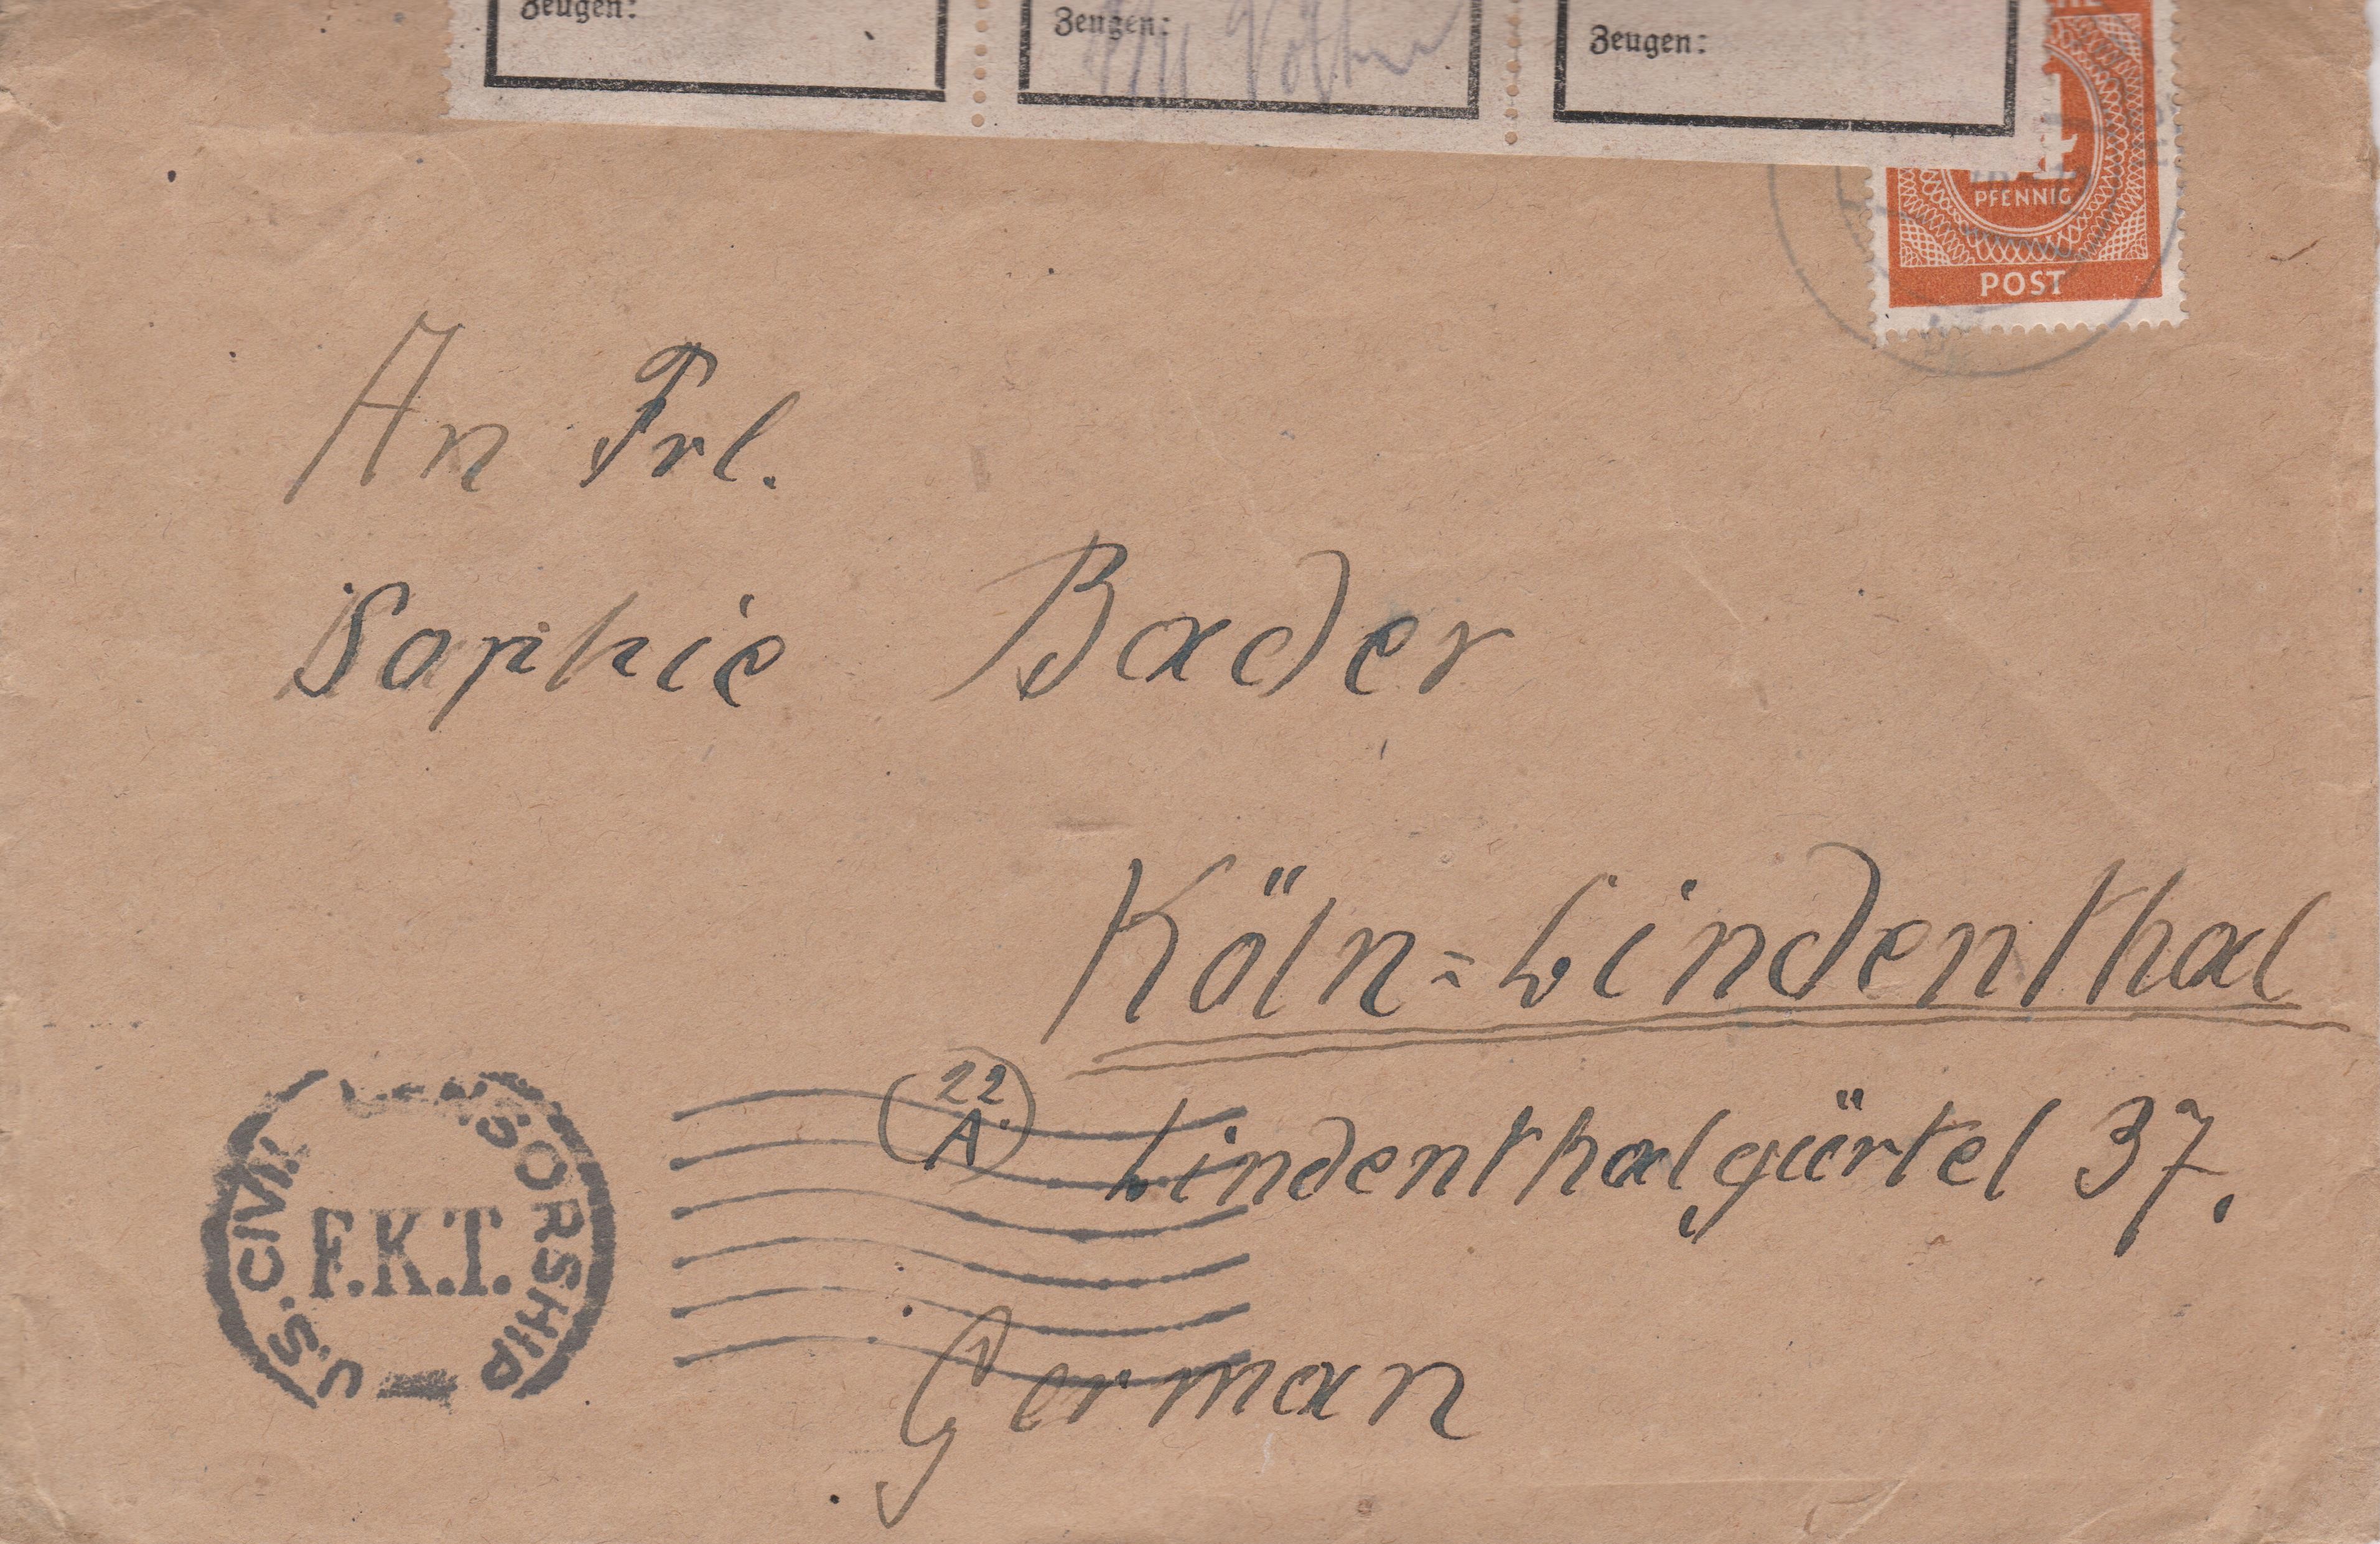 Zeugen:
Zeugen:
Zeugen:
PFENNIG
POST
An Frl.
Sophie Bader
Köln=Lindenthal
22
A.
Lindenthalgürtel 37.
German
U.S. CIVIL CENSORSHIP
F.K.T.